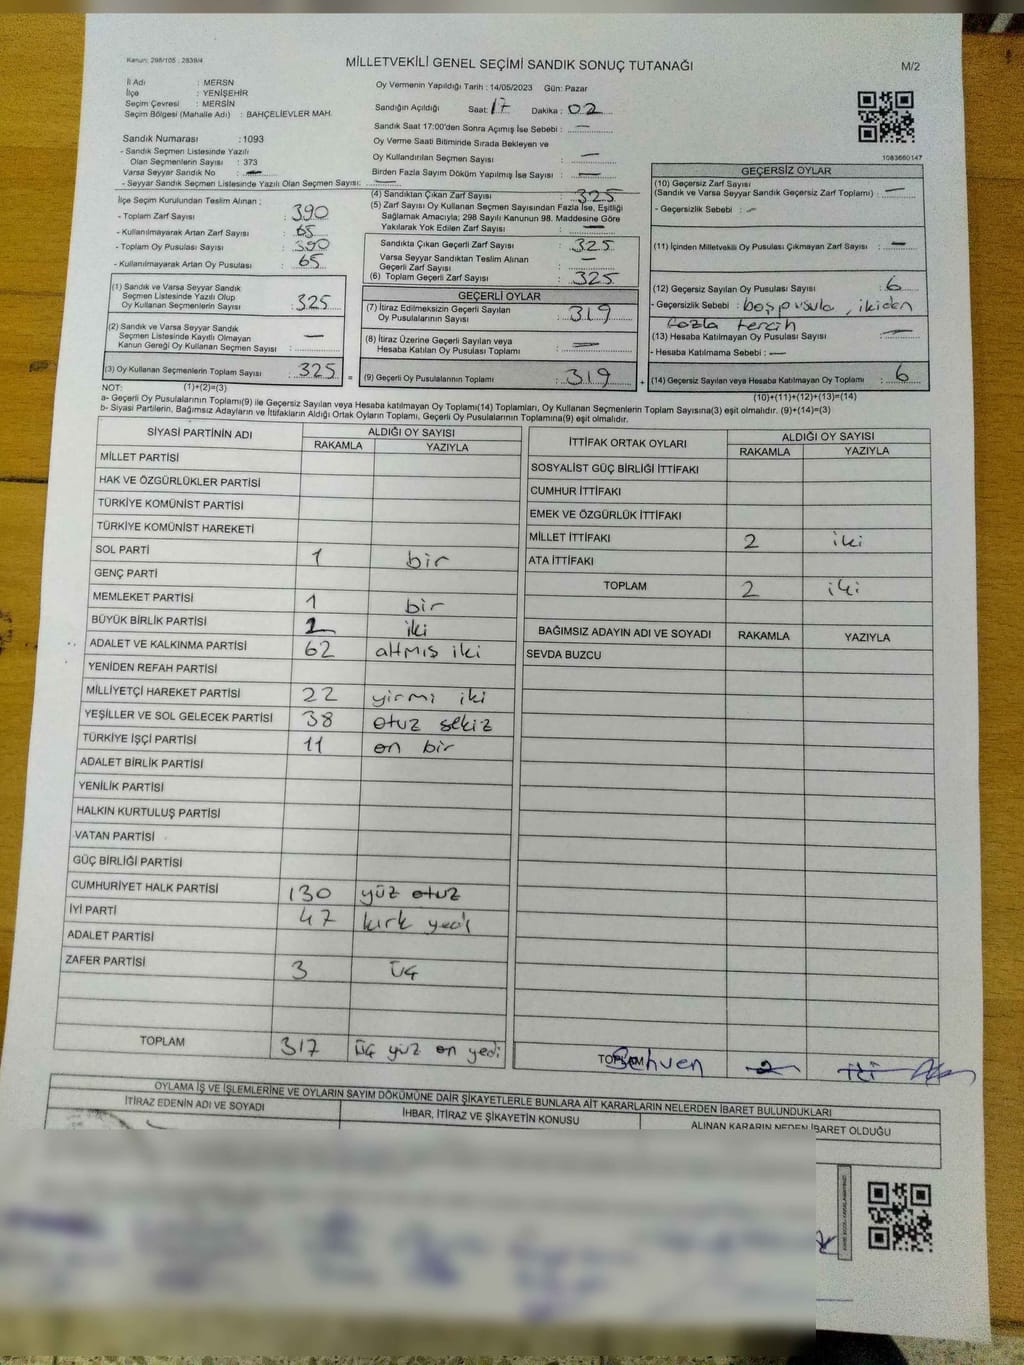 Kanun: 298/105 , 2839/4
MİLLETVEKİLİ GENEL SEÇİMİ SANDIK SONUÇ TUTANAĞI
M/2
İl Adı : MERSN
İlçe : YENİŞEHİR
Seçim Çevresi : MERSİN
Seçim Bölgesi (Mahalle Adı) : BAHÇELİEVLER MAH.
Oy Vermenin Yapıldığı Tarih : 14/05/2023 Gün: Pazar
Sandığın Açıldığı Saat: 17 Dakika : 02
Sandık Saat 17:00'den Sonra Açımış İse Sebebi : —
Oy Verme Saati Bitiminde Sırada Bekleyen ve
Oy Kullandırılan Seçmen Sayısı : —
Birden Fazla Sayım Döküm Yapılmış İse Sayısı : —
1083660147
Sandık Numarası : 1093
- Sandık Seçmen Listesinde Yazılı
Olan Seçmenlerin Sayısı : 373
Varsa Seyyar Sandık No : —
- Seyyar Sandık Seçmen Listesinde Yazılı Olan Seçmen Sayısı: —
İlçe Seçim Kurulundan Teslim Alınan ;
- Toplam Zarf Sayısı : 390
- Kullanılmayarak Artan Zarf Sayısı : 65
- Toplam Oy Pusulası Sayısı : 390
- Kullanılmayarak Artan Oy Pusulası : 65
(1) Sandık ve Varsa Seyyar Sandık
Seçmen Listesinde Yazılı Olup
Oy Kullanan Seçmenlerin Sayısı : 325
(2) Sandık ve Varsa Seyyar Sandık
Seçmen Listesinde Kayıtlı Olmayan
Kanun Gereği Oy Kullanan Seçmen Sayısı : —
(3) Oy Kullanan Seçmenlerin Toplam Sayısı : 325 =
(4) Sandıktan Çıkan Zarf Sayısı : 325
(5) Zarf Sayısı Oy Kullanan Seçmen Sayısından Fazla İse, Eşitliği
Sağlamak Amacıyla; 298 Sayılı Kanunun 98. Maddesine Göre
Yakılarak Yok Edilen Zarf Sayısı : —
Sandıkta Çıkan Geçerli Zarf Sayısı : 325
Varsa Seyyar Sandıktan Teslim Alınan
Geçerli Zarf Sayısı : —
(6) Toplam Geçerli Zarf Sayısı : 325
GEÇERLİ OYLAR
(7) İtiraz Edilmeksizin Geçerli Sayılan
Oy Pusulalarının Sayısı : 319
(8) İtiraz Üzerine Geçerli Sayılan veya
Hesaba Katılan Oy Pusulası Toplamı : —
(9) Geçerli Oy Pusulalarının Toplamı : 319 +
GEÇERSİZ OYLAR
(10) Geçersiz Zarf Sayısı
(Sandık ve Varsa Seyyar Sandık Geçersiz Zarf Toplamı) : —
- Geçersizlik Sebebi : —
(11) İçinden Milletvekili Oy Pusulası Çıkmayan Zarf Sayısı : —
(12) Geçersiz Sayılan Oy Pusulası Sayısı : 6
- Geçersizlik Sebebi : boş pusula, ikiden
fazla tercih
(13) Hesaba Katılmayan Oy Pusulası Sayısı : —
- Hesaba Katılmama Sebebi : —
(14) Geçersiz Sayılan veya Hesaba Katılmayan Oy Toplamı : 6
NOT: (1)+(2)=(3)
(10)+(11)+(12)+(13)=(14)
a- Geçerli Oy Pusulaları Toplamı(9) ile Geçersiz Sayılan veya Hesaba katılmayan Oy Toplamı(14) Toplamları, Oy Kullanan Seçmenlerin Toplam Sayısına(3) eşit olmalıdır. (9)+(14)=(3)
b- Siyasi Partilerin, Bağımsız Adayların ve İttifakların Aldığı Ortak Oyların Toplamı, Geçerli Oy Pusulalarının Toplamına(9) eşit olmalıdır.
SİYASİ PARTİNİN ADI ALDIĞI OY SAYISI
RAKAMLA YAZIYLA
MİLLET PARTİSİ
HAK VE ÖZGÜRLÜKLER PARTİSİ
TÜRKİYE KOMÜNİST PARTİSİ
TÜRKİYE KOMÜNİST HAREKETİ
SOL PARTİ 1 bir
GENÇ PARTİ
MEMLEKET PARTİSİ 1 bir
BÜYÜK BİRLİK PARTİSİ 2 iki
ADALET VE KALKINMA PARTİSİ 62 altmış iki
YENİDEN REFAH PARTİSİ
MİLLİYETÇİ HAREKET PARTİSİ 22 yirmi iki
YEŞİLLER VE SOL GELECEK PARTİSİ 38 otuz sekiz
TÜRKİYE İŞÇİ PARTİSİ 11 on bir
ADALET BİRLİK PARTİSİ
YENİLİK PARTİSİ
HALKIN KURTULUŞ PARTİSİ
VATAN PARTİSİ
GÜÇ BİRLİĞİ PARTİSİ
CUMHURİYET HALK PARTİSİ 130 yüz otuz
İYİ PARTİ 47 kırk yedi
ADALET PARTİSİ
ZAFER PARTİSİ 3 üç
TOPLAM 317 üç yüz on yedi
İTTİFAK ORTAK OYLARI ALDIĞI OY SAYISI
RAKAMLA YAZIYLA
SOSYALİST GÜÇ BİRLİĞİ İTTİFAKI
CUMHUR İTTİFAKI
EMEK VE ÖZGÜRLÜK İTTİFAKI
MİLLET İTTİFAKI 2 iki
ATA İTTİFAKI
TOPLAM 2 iki
BAĞIMSIZ ADAYIN ADI VE SOYADI RAKAMLA YAZIYLA
SEVDA BUZCU
TOPLAM Sehven 2 iki
OYLAMA İŞ VE İŞLEMLERİNE VE OYLARIN SAYIM DÖKÜMÜNE DAİR ŞİKAYETLERLE BUNLARA AİT KARARLARIN NELERDEN İBARET BULUNDUKLARI
İTİRAZ EDENİN ADI VE SOYADI İHBAR, İTİRAZ VE ŞİKAYETİN KONUSU ALINAN KARARIN NEDEN İBARET OLDUĞU